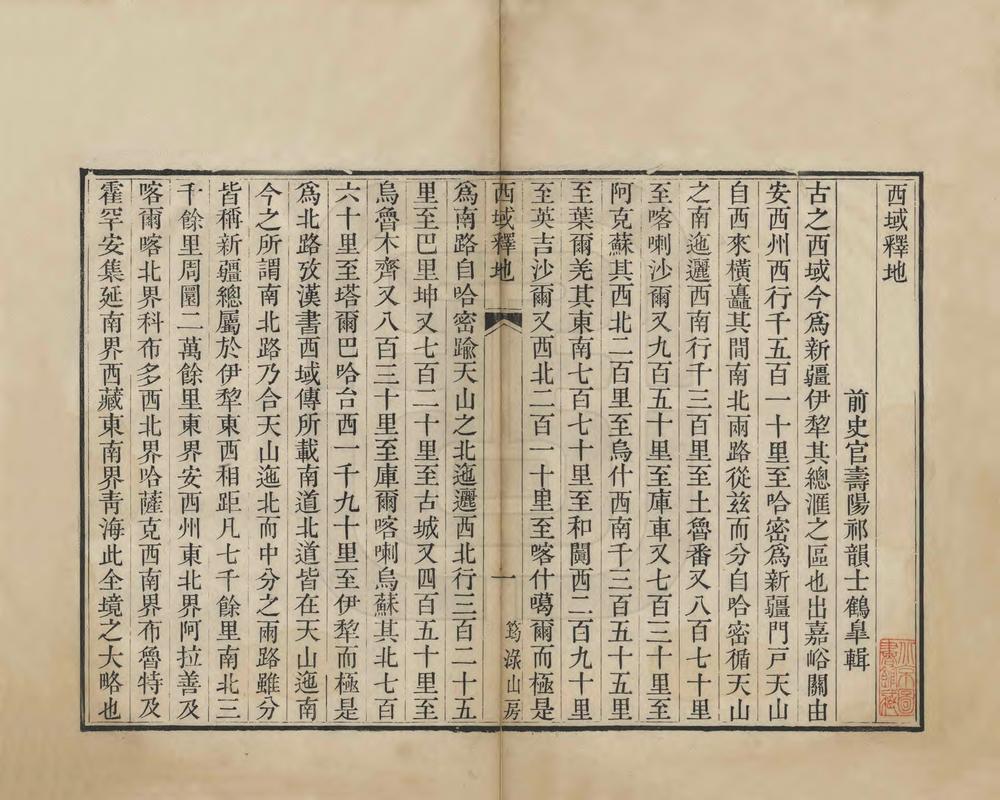 西域釋地
前史官壽陽祁韻士鶴臯輯
古之西域今爲新疆伊犂其總滙之區也出嘉峪關由
安西州西行千五百一十里至哈密爲新疆門戸天山
自西來橫矗其間南北兩路從兹而分自哈密循天山
之南迤邐西南行千三百里至土魯番又八百七十里
至喀喇沙爾又九百五十里至庫車又七百三十里至
阿克蘇其西北二百里至烏什西南千三百五十五里
至葉爾羌其東南七百七十里至和闐西二百九十里
至英吉沙爾又西北二百一十里至喀什噶爾而極是
西域釋地
一
筠淥山房
爲南路自哈密踰天山之北迤邐西北行三百二十五
里至巴里坤又七百二十里至古城又四百五十里至
烏魯木齊又八百三十里至庫爾喀喇烏蘇其北七百
六十里至塔爾巴哈台西一千九十里至伊犂而極是
爲北路攷漢書西域傳所載南道北道皆在天山迤南
今之所謂南北路乃合天山迤北而中分之兩路雖分
皆稱新疆總屬於伊犂東西相距凡七千餘里南北三
千餘里周圍二萬餘里東界安西州東北界阿拉善及
喀爾喀北界科布多西北界哈薩克西南界布魯特及
霍罕安集延南界西藏東南界靑海此全境之大略也